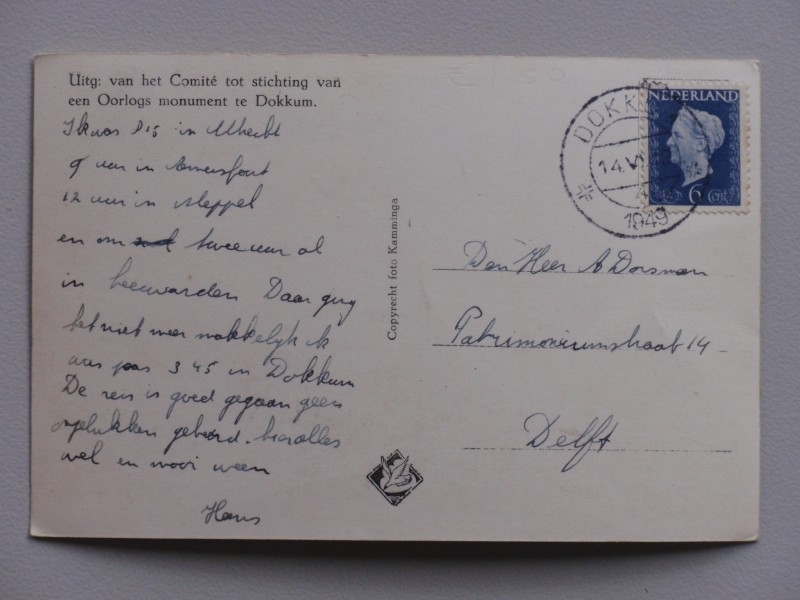 Uitg: van het Comité tot stichting van
een Oorlogs monument te Dokkum.
Ik was in Utrecht
9 uur in Amersfoort
12 uur in Meppel
en om twee uur al
in Leeuwarden Daar ging
het niet meer makkelijk ik
was pas 3 45 in Dokkum
De reis is goed gegaan geen
ongelukken gebeurd. hier alles
wel en mooi weer
Hans
Copyrecht foto Kamminga
DOKKUM
14.VI
1949
NEDERLAND
6 Cent
Den Heer A Dorsman
Patrimoniumstraat 14-
Delft